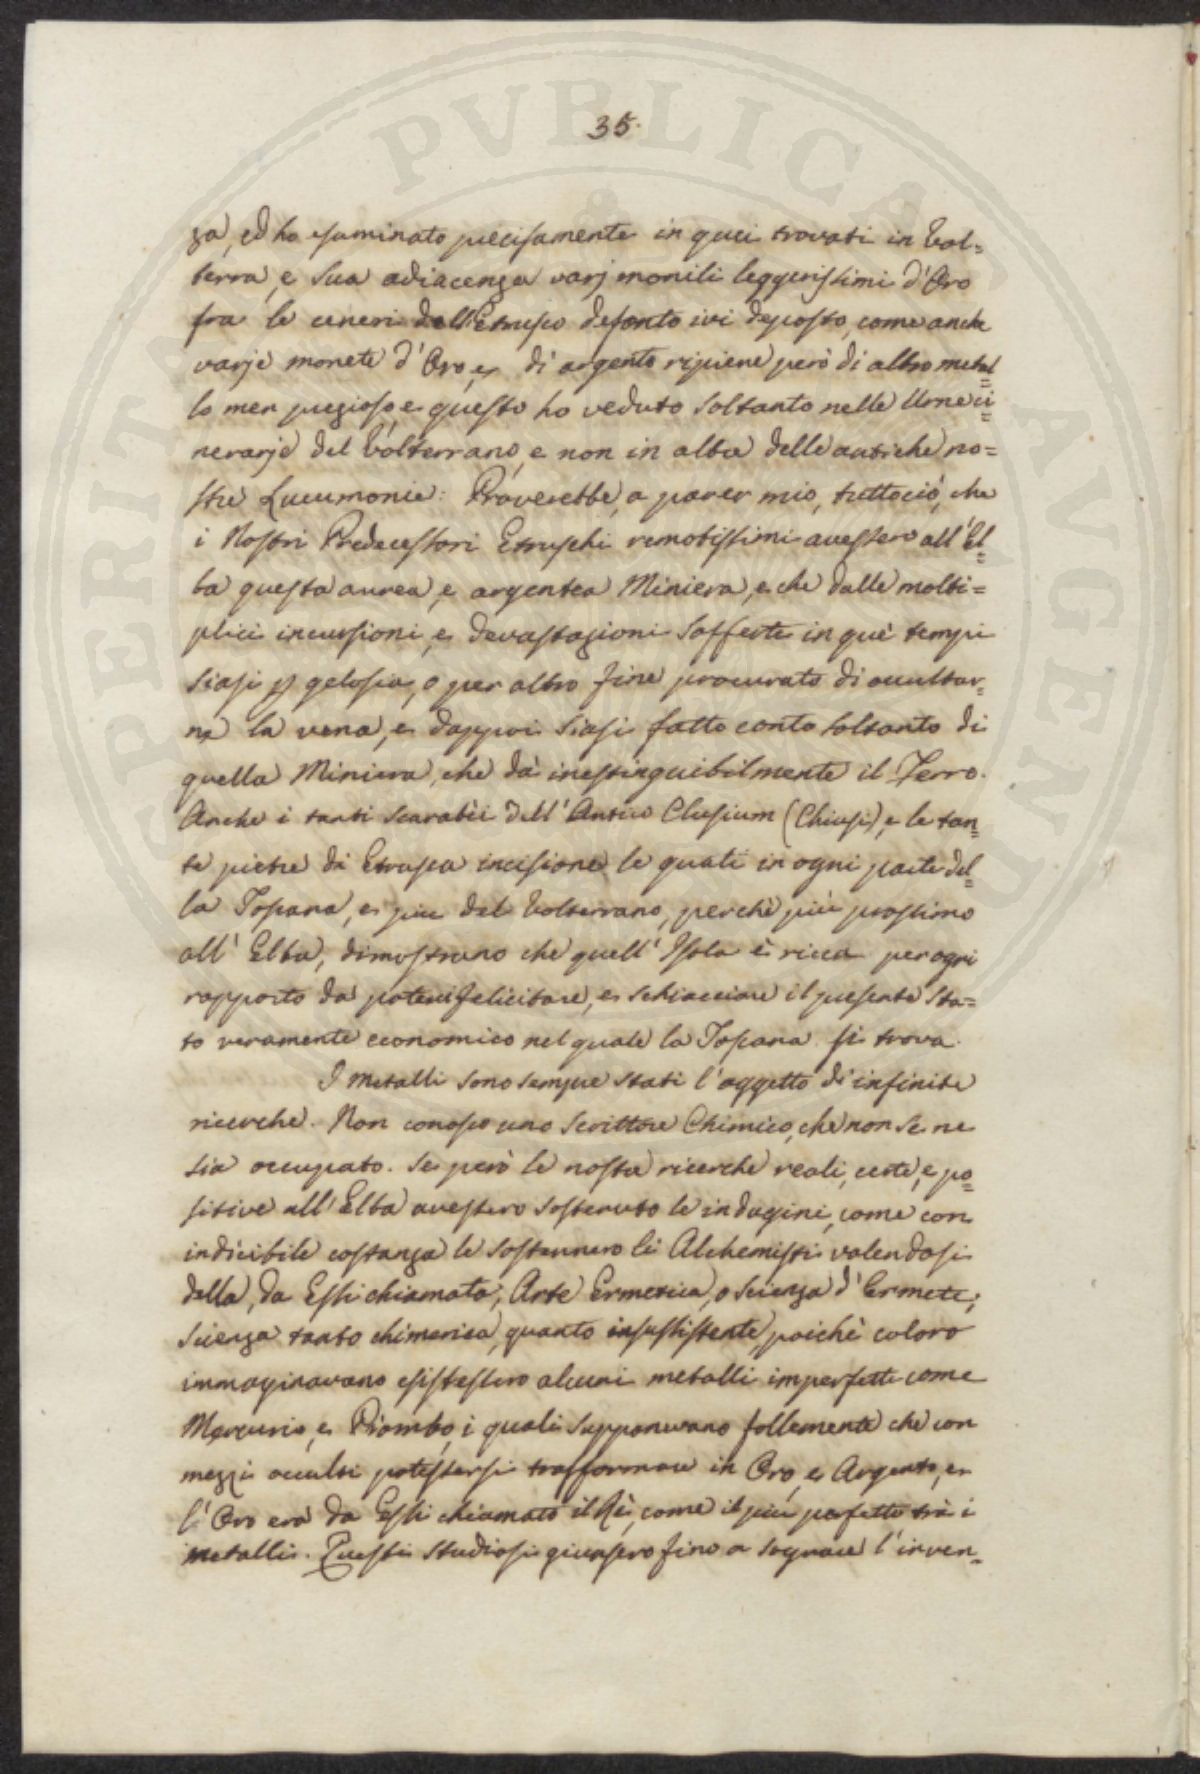 35.
za, ed ho esaminato precisamente in quei trovati in Vol=
terra, e sua adiacenza varj monili leggerissimi d'Oro
fra le ceneri dell'Etrusco defonto ivi deposto, come anche
varje monete d'Oro, e di argento ripiene però di altro metal=
lo men prezioso, e questo ho veduto soltanto nelle Urne ci=
nerarje del Volterrano, e non in altre delle antiche no=
stre Lucumonie: Proverebbe, a parer mio, tuttociò, che
i Nostri Predecessori Etruschi remotissimi avessero all'El=
ba questa aurea, e argentea Miniera, e che dalle molti=
plici incursioni, e devastazioni sofferte in què tempi
siasi p gelosia, o per altro fine procurato di occultar=
ne la vena, e dappoi siasi fatto conto soltanto di
quella Miniera, che dà inestinguibilmente il Ferro.
Anche i tanti scarabèi dell'Antico Clusium (Chiusi), e le tan=
te pietre di Etrusca incisione le quali in ogni parte del=
la Toscana, e più del Volterrano, perchè più prossimo
all'Elba, dimostrano che quell'Isola è ricca per ogni
rapporto da poterci felicitare, e schiacciare il presente sta=
to veramente economico nel quale la Toscana si trova.
I metalli sono sempre stati l'oggetto di infinite
ricerche. Non conosco uno Scrittore Chimico, che non se ne
sia occupato. Se però le nostre ricerche reali, certe, e po=
sitive all'Elba avessero sostenuto le indagini, come con
indicibile costanza le sostennero li Alchemisti valendosi
della, da Essi chiamata, Arte Ermetica, o Scienza d'Ermete;
Scienza tanto chimerica, quanto insussistente, poichè coloro
immaginavano esistessero alcuni metalli imperfetti come
Mercurio, e Piombo, i quali supponevano follemente che con
mezzi occulti potessersi trasformare in Oro, e Argento, e
l'Oro era da Essi chiamato il Rè, come il più perfetto trà i
metalli. Questi studiosi giunsero fino a sognare l'inven=
PERITAS PVBLICA AVGENDA